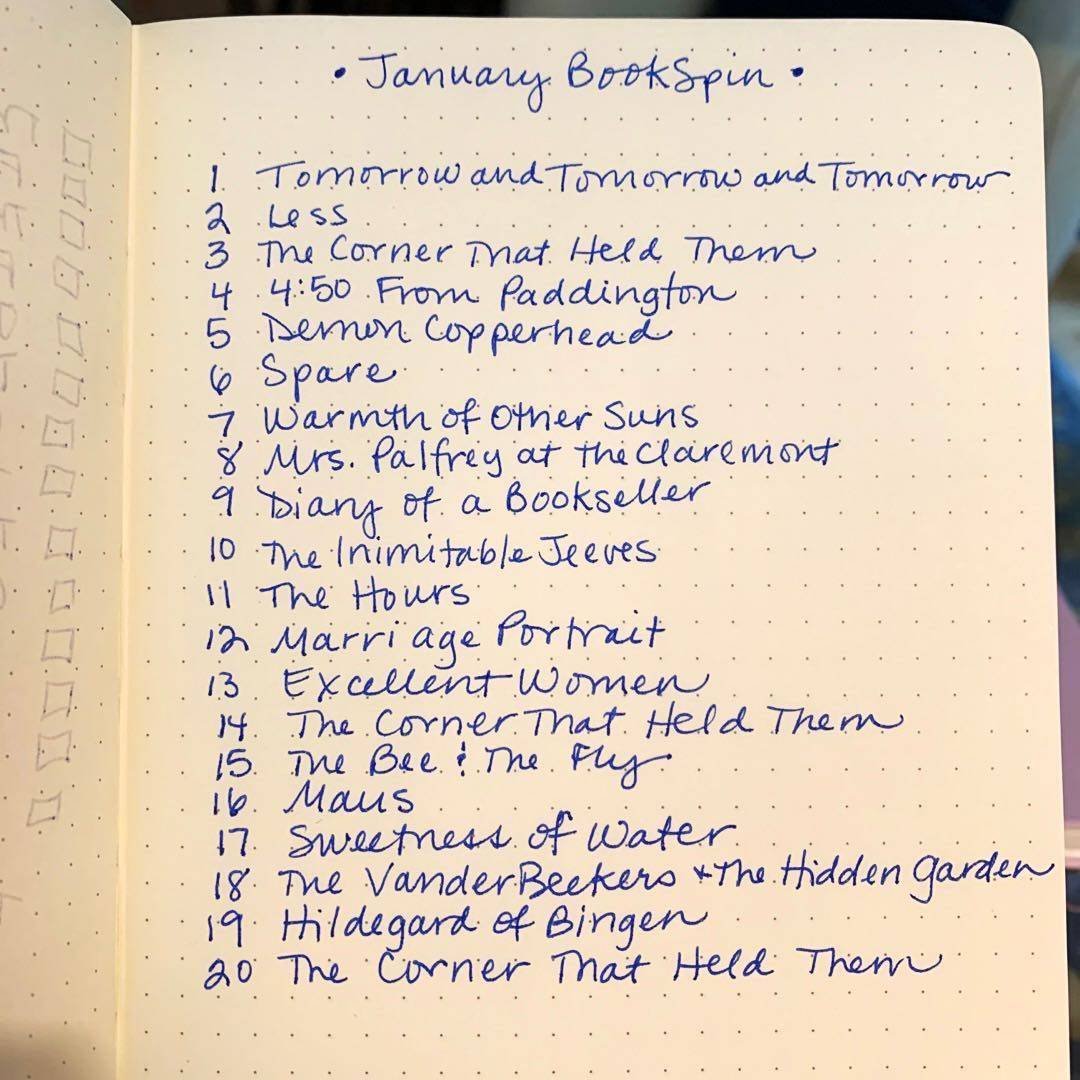 • January BookSpin •
1. Tomorrow and Tomorrow and Tomorrow
2 Less
3 The Corner That Held Them
4 4:50 From Paddington
5 Demon Copperhead
6 Spare
7 Warmth of Other Suns
8 Mrs. Palfrey at the Claremont
9 Diary of a Bookseller
10 The Inimitable Jeeves
11 The Hours
12 Marriage Portrait
13 Excellent Women
14. The Corner That Held Them
15. The Bee & The Fly
16. Maus
17. Sweetness of Water
18. The VanderBeekers & The Hidden Garden
19. Hildegard of Bingen
20 The Corner That Held Them